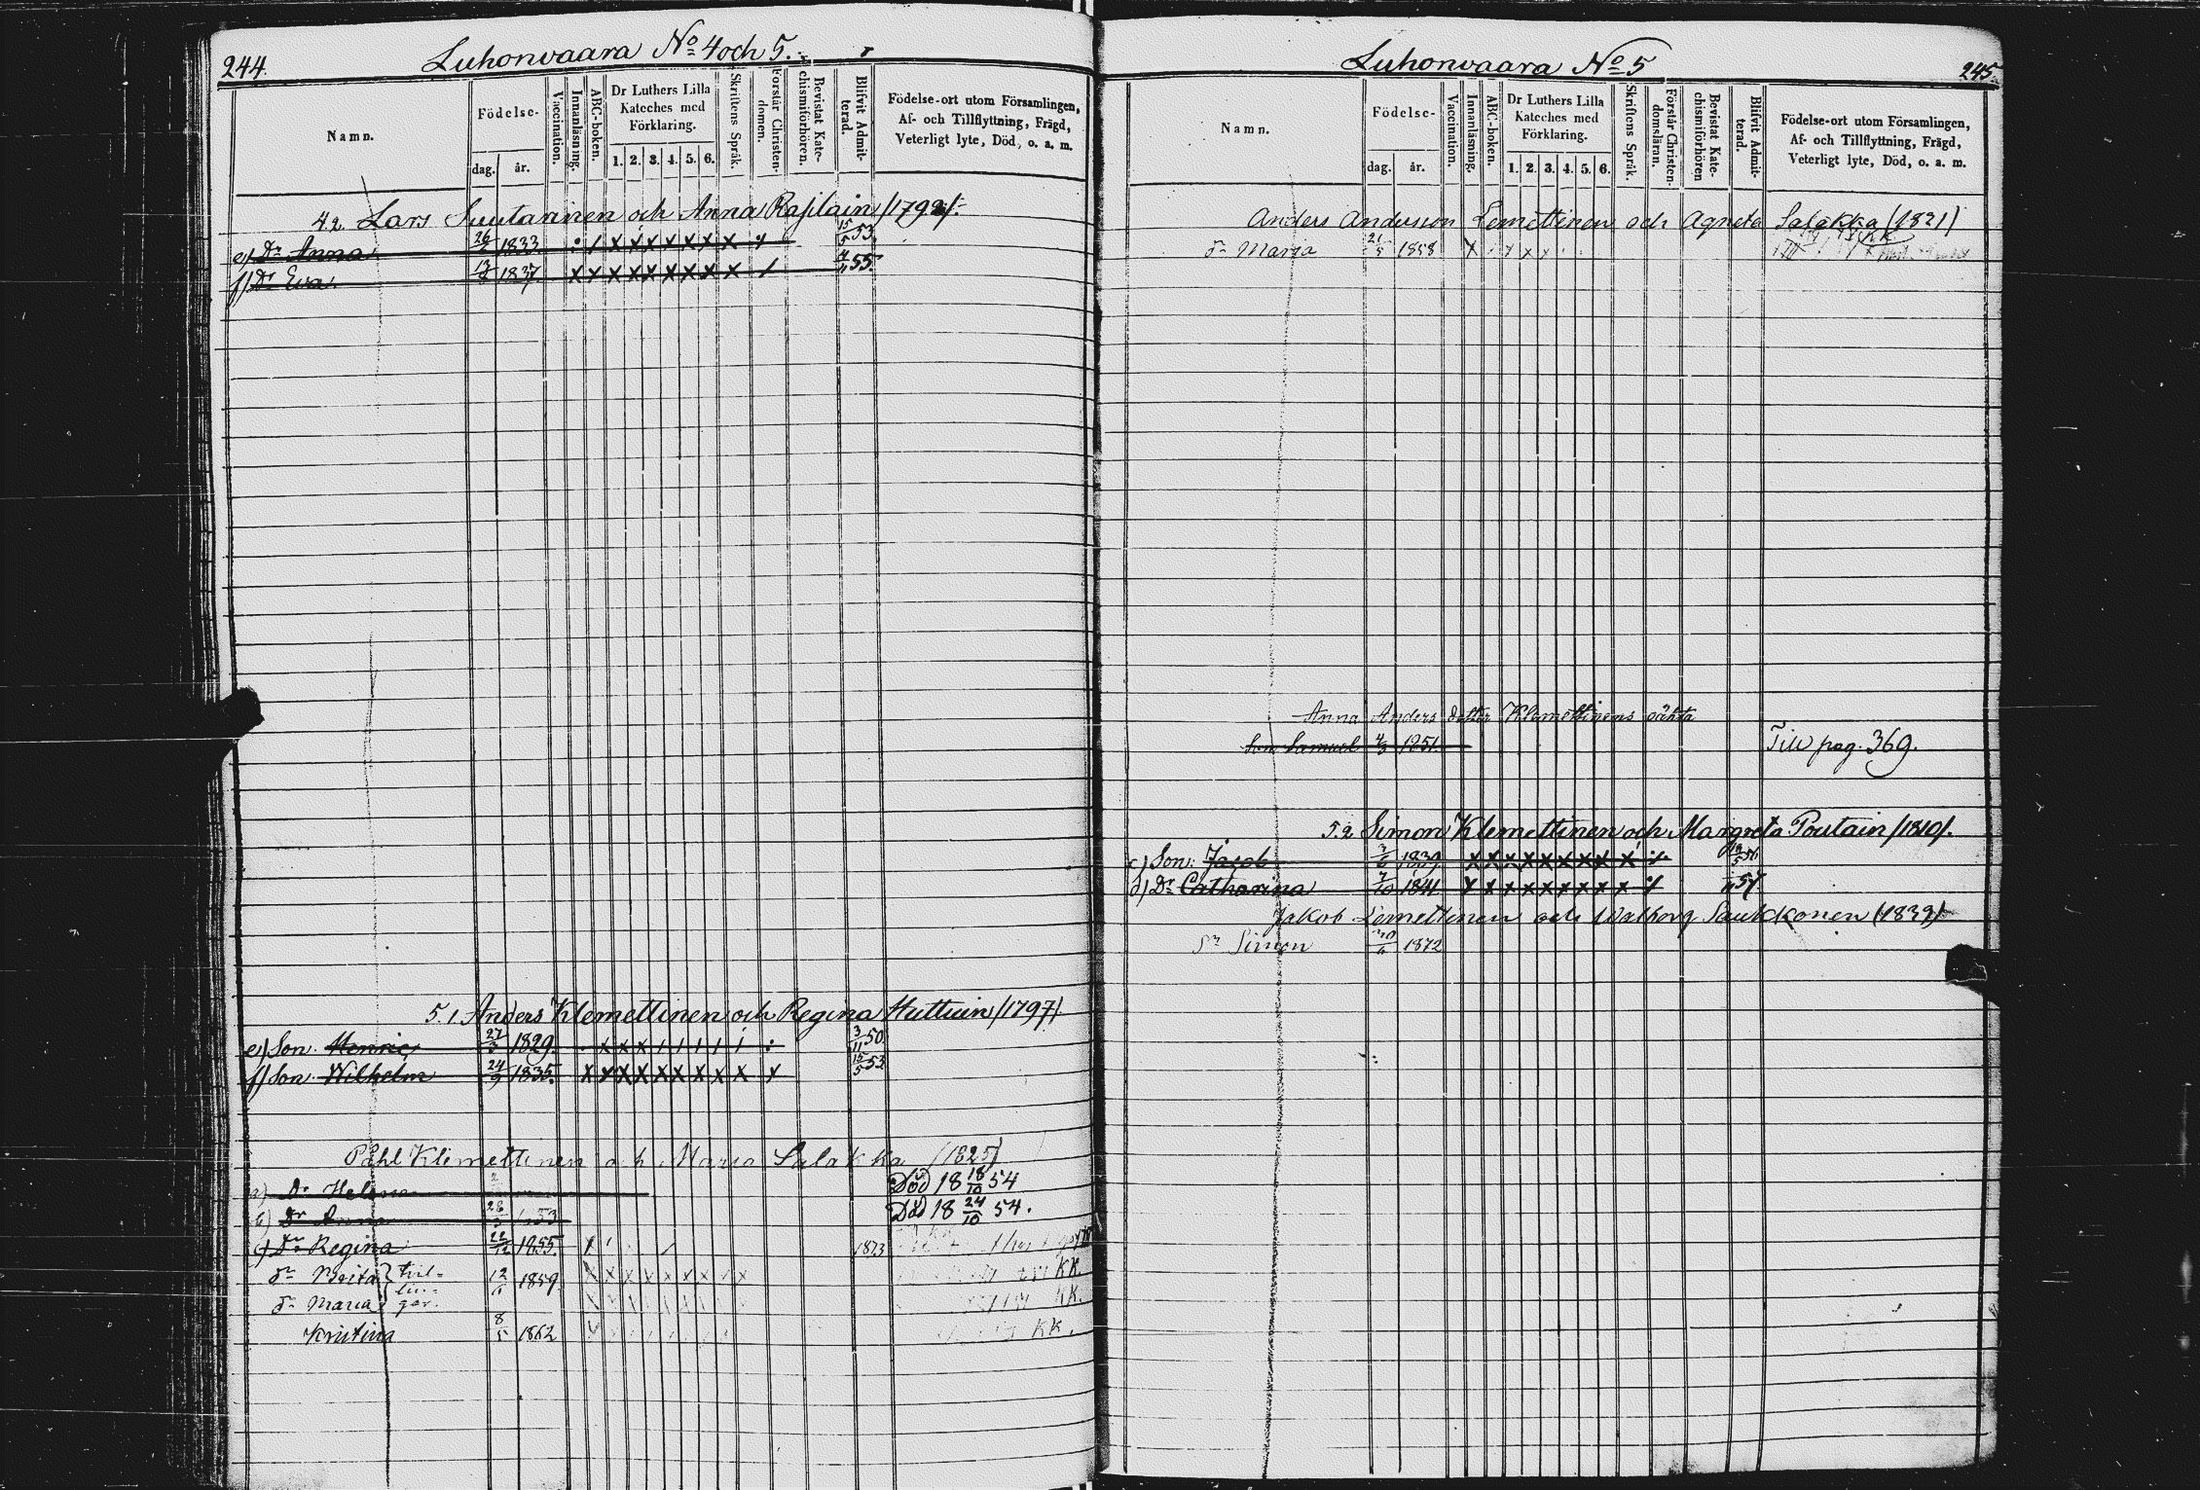 244.
Luhonvaara No 4 och 5.
Namn.
Födelse-
dag.
år.
Vaccination.
Innanläsning.
ABC-boken.
Dr Luthers Lilla
Kateches med
Förklaring.
1. 2. 3. 4. 5. 6.
Skriftens Språk.
Förstår Christen-
domen.
Bevistat Kate-
chismiförhören.
Blifvit Admit-
terad.
Födelse-ort utom Församlingen,
Af- och Tillflyttning, Frägd,
Veterligt lyte, Död, o. a. m.
4.2. Lars Suutarinen och Anna
e) Dr Anna 1833 15/5 53.
f) Dr Eva. 1837. 55.
5.1. Anders Klemettinen och Regina Huttuin /1797/
e) Son. Henric 27/3 1829. 3/11 50
f) Son. Wilhelm 24/9 1835. 15/5 53
Påhl Klemettinen och Maria Salakka (1825)
a) Dr Helena Död 18 18/10 54
b) Dr Anna 53 Död 18 24/10 54.
c) Dr Regina 1855. 1873
dr Brita tvil- 12 1859. KK.
dr Maria lin- gar. KK.
Kristina 8/5 1862 KK.
Luhonvaara No 5
245.
Namn.
Födelse-
dag.
år.
Vaccination.
Innanläsning.
ABC-boken.
Dr Luthers Lilla
Kateches med
Förklaring.
1. 2. 3. 4. 5. 6.
Skriftens Språk.
Förstår Christen-
domsläran.
Bevistat Kate-
chismiförhören
Blifvit Admit-
terad.
Födelse-ort utom Församlingen,
Af- och Tillflyttning, Frägd,
Veterligt lyte, Död, o. a. m.
Anders Andersson Lemettinen och Agneta Salakka (1821)
dr Maria 21/5 1858
Anna Anders dotter Klemettinens oäkta
Son Samuel 1851. Till pag. 369.
5.2 Simon Klemettinen och Margreta Poutain /1810/.
c) Son. Jacob 1839. 56
d) Dr Catharina 7/10 1841 57
Jakob Lemettinen och Walborg Saukkonen (1839)
Sn Simon 1872